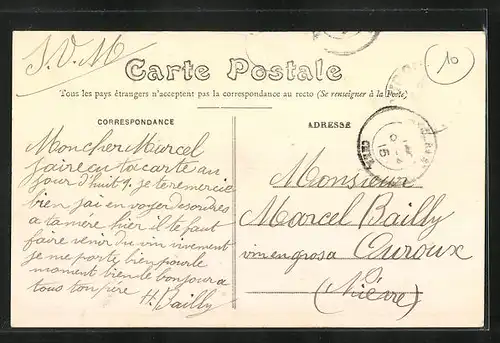 S.V.M
10
Carte Postale
Tous les pays étrangers n'acceptent pas la correspondance au recto (Se renseigner à la Poste)
CORRESPONDANCE
Mon cher Marcel
ta carte au
jour d'huit 9. je te remercie
bien jai en voyer des ordres
a ta mére hier il te faut
faire venir du vin vivement
je me porte bien pour le
moment bien le bonjour a
tous ton pére
H. Bailly
ADRESSE
Monsieur
Marcel Bailly
vin en gros a Ouroux
(Nièvre)
15